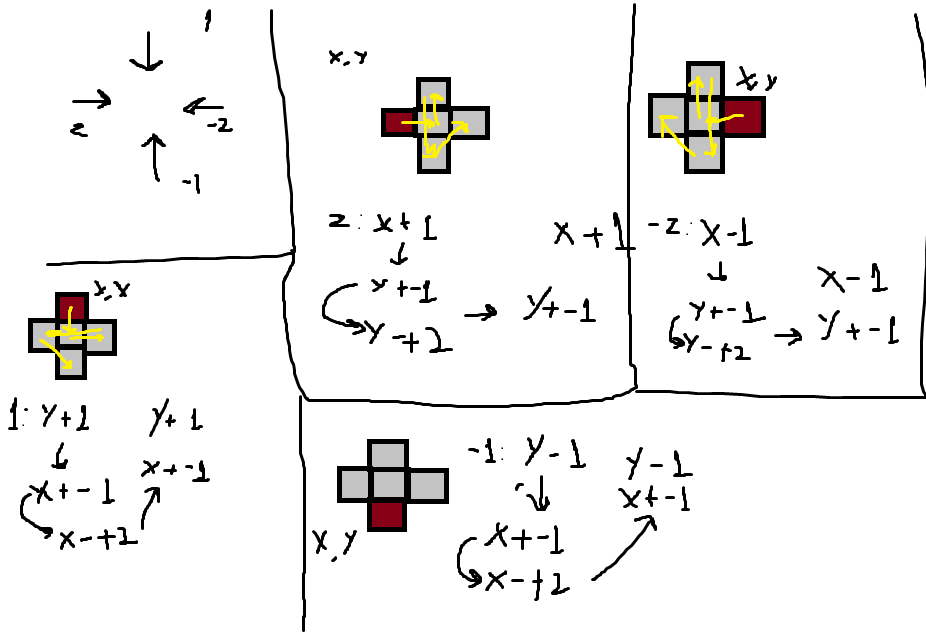 1
2
-2
-1
x,y
2: x+1
x+-1
y-+2
y+-1
x+1
x,y
-2: x-1
y+-1
y-+2
x-1
y+-1
x,y
1: y+1
x+-1
x-+2
y+1
x+-1
x,y
-1: y-1
x+-1
x-+2
y-1
x+-1